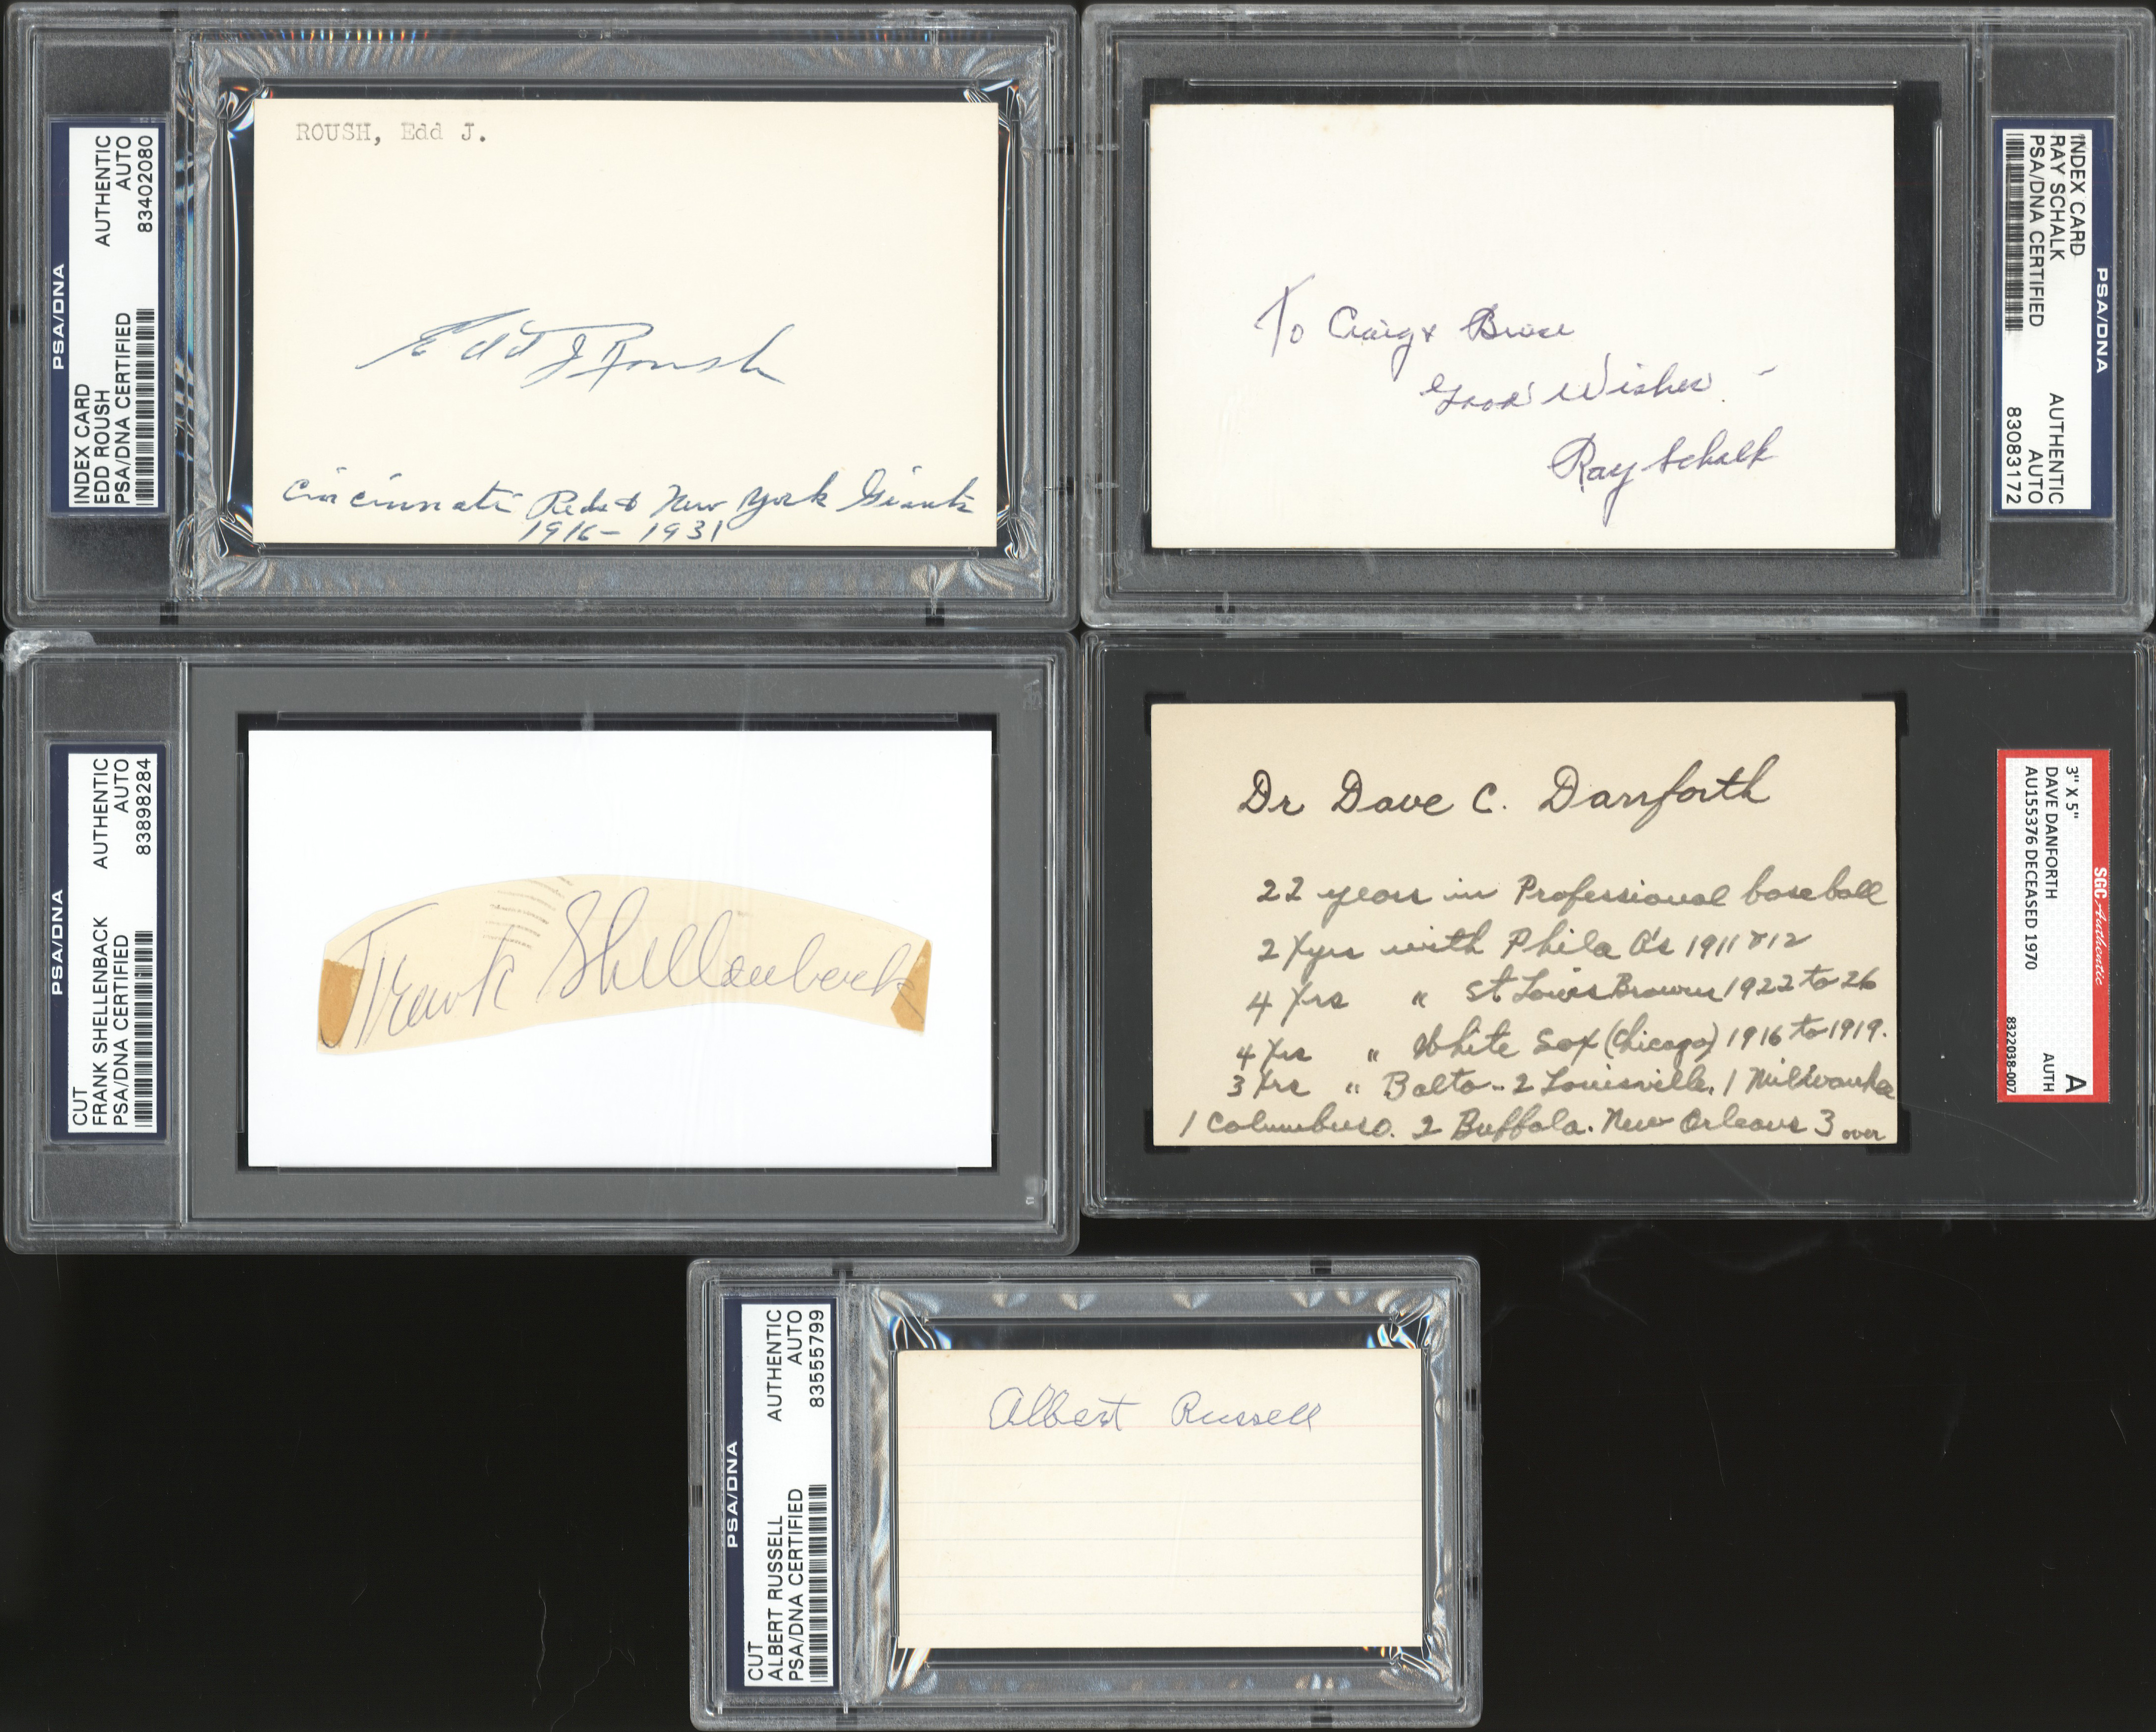 PSA/DNA
INDEX CARD
EDD ROUSH
PSA/DNA CERTIFIED
AUTHENTIC
AUTO
83402080
ROUSH, Edd J.
Edd J Roush
Cincinnati Reds & New York Giants
1916 - 1931
PSA/DNA
INDEX CARD
RAY SCHALK
PSA/DNA CERTIFIED
AUTHENTIC
AUTO
83083172
To Craig & Bruce
Good Wishes -
Ray Schalk
PSA/DNA
CUT
FRANK SHELLENBACK
PSA/DNA CERTIFIED
AUTHENTIC
AUTO
83898284
Frank Shellenback
SGC Authentic
3" X 5"
DAVE DANFORTH
AU155376 DECEASED 1970
A
AUTH
8322038-007
Dr Dave C. Danforth
22 years in Professional baseball
2 yrs with Phila A's 1911 & 12
4 yrs " St Louis Browns 1922 to 26
4 yrs " White Sox (Chicago) 1916 to 1919.
3 yrs " Balto - 2 Louisville. 1 Milwaukee
1 Columbus O. 2 Buffalo. New Orleans 3 over
PSA/DNA
CUT
ALBERT RUSSELL
PSA/DNA CERTIFIED
AUTHENTIC
AUTO
83555799
Albert Russell